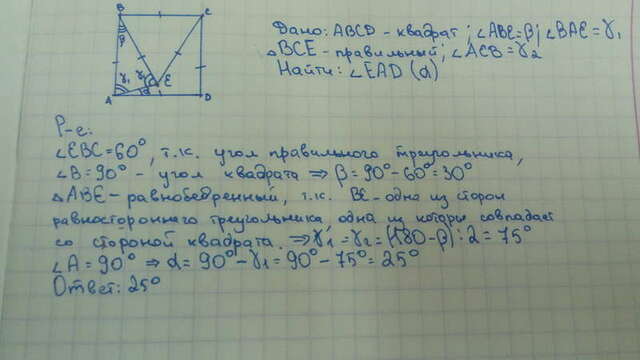 B
C
β
γ₁
γ₂
E
α
A
D
Дано: ABCD - квадрат; ∠ABE=β; ∠BAE=γ₁
△BCE - правильный; ∠AEB=γ₂
Найти: ∠EAD (α)
Р-е:
∠EBC=60°, т.к. угол правильного треугольника,
∠B=90° - угол квадрата ⇒ β=90°-60°=30°
△ABE - равнобедренный, т.к. BE - одна из сторон
равностороннего треугольника, одна из которых совпадает
со стороной квадрата. ⇒ γ₁=γ₂=(180-β):2=75°
∠A=90° ⇒ α=90°-γ₁=90°-75°=25°
Ответ: 25°